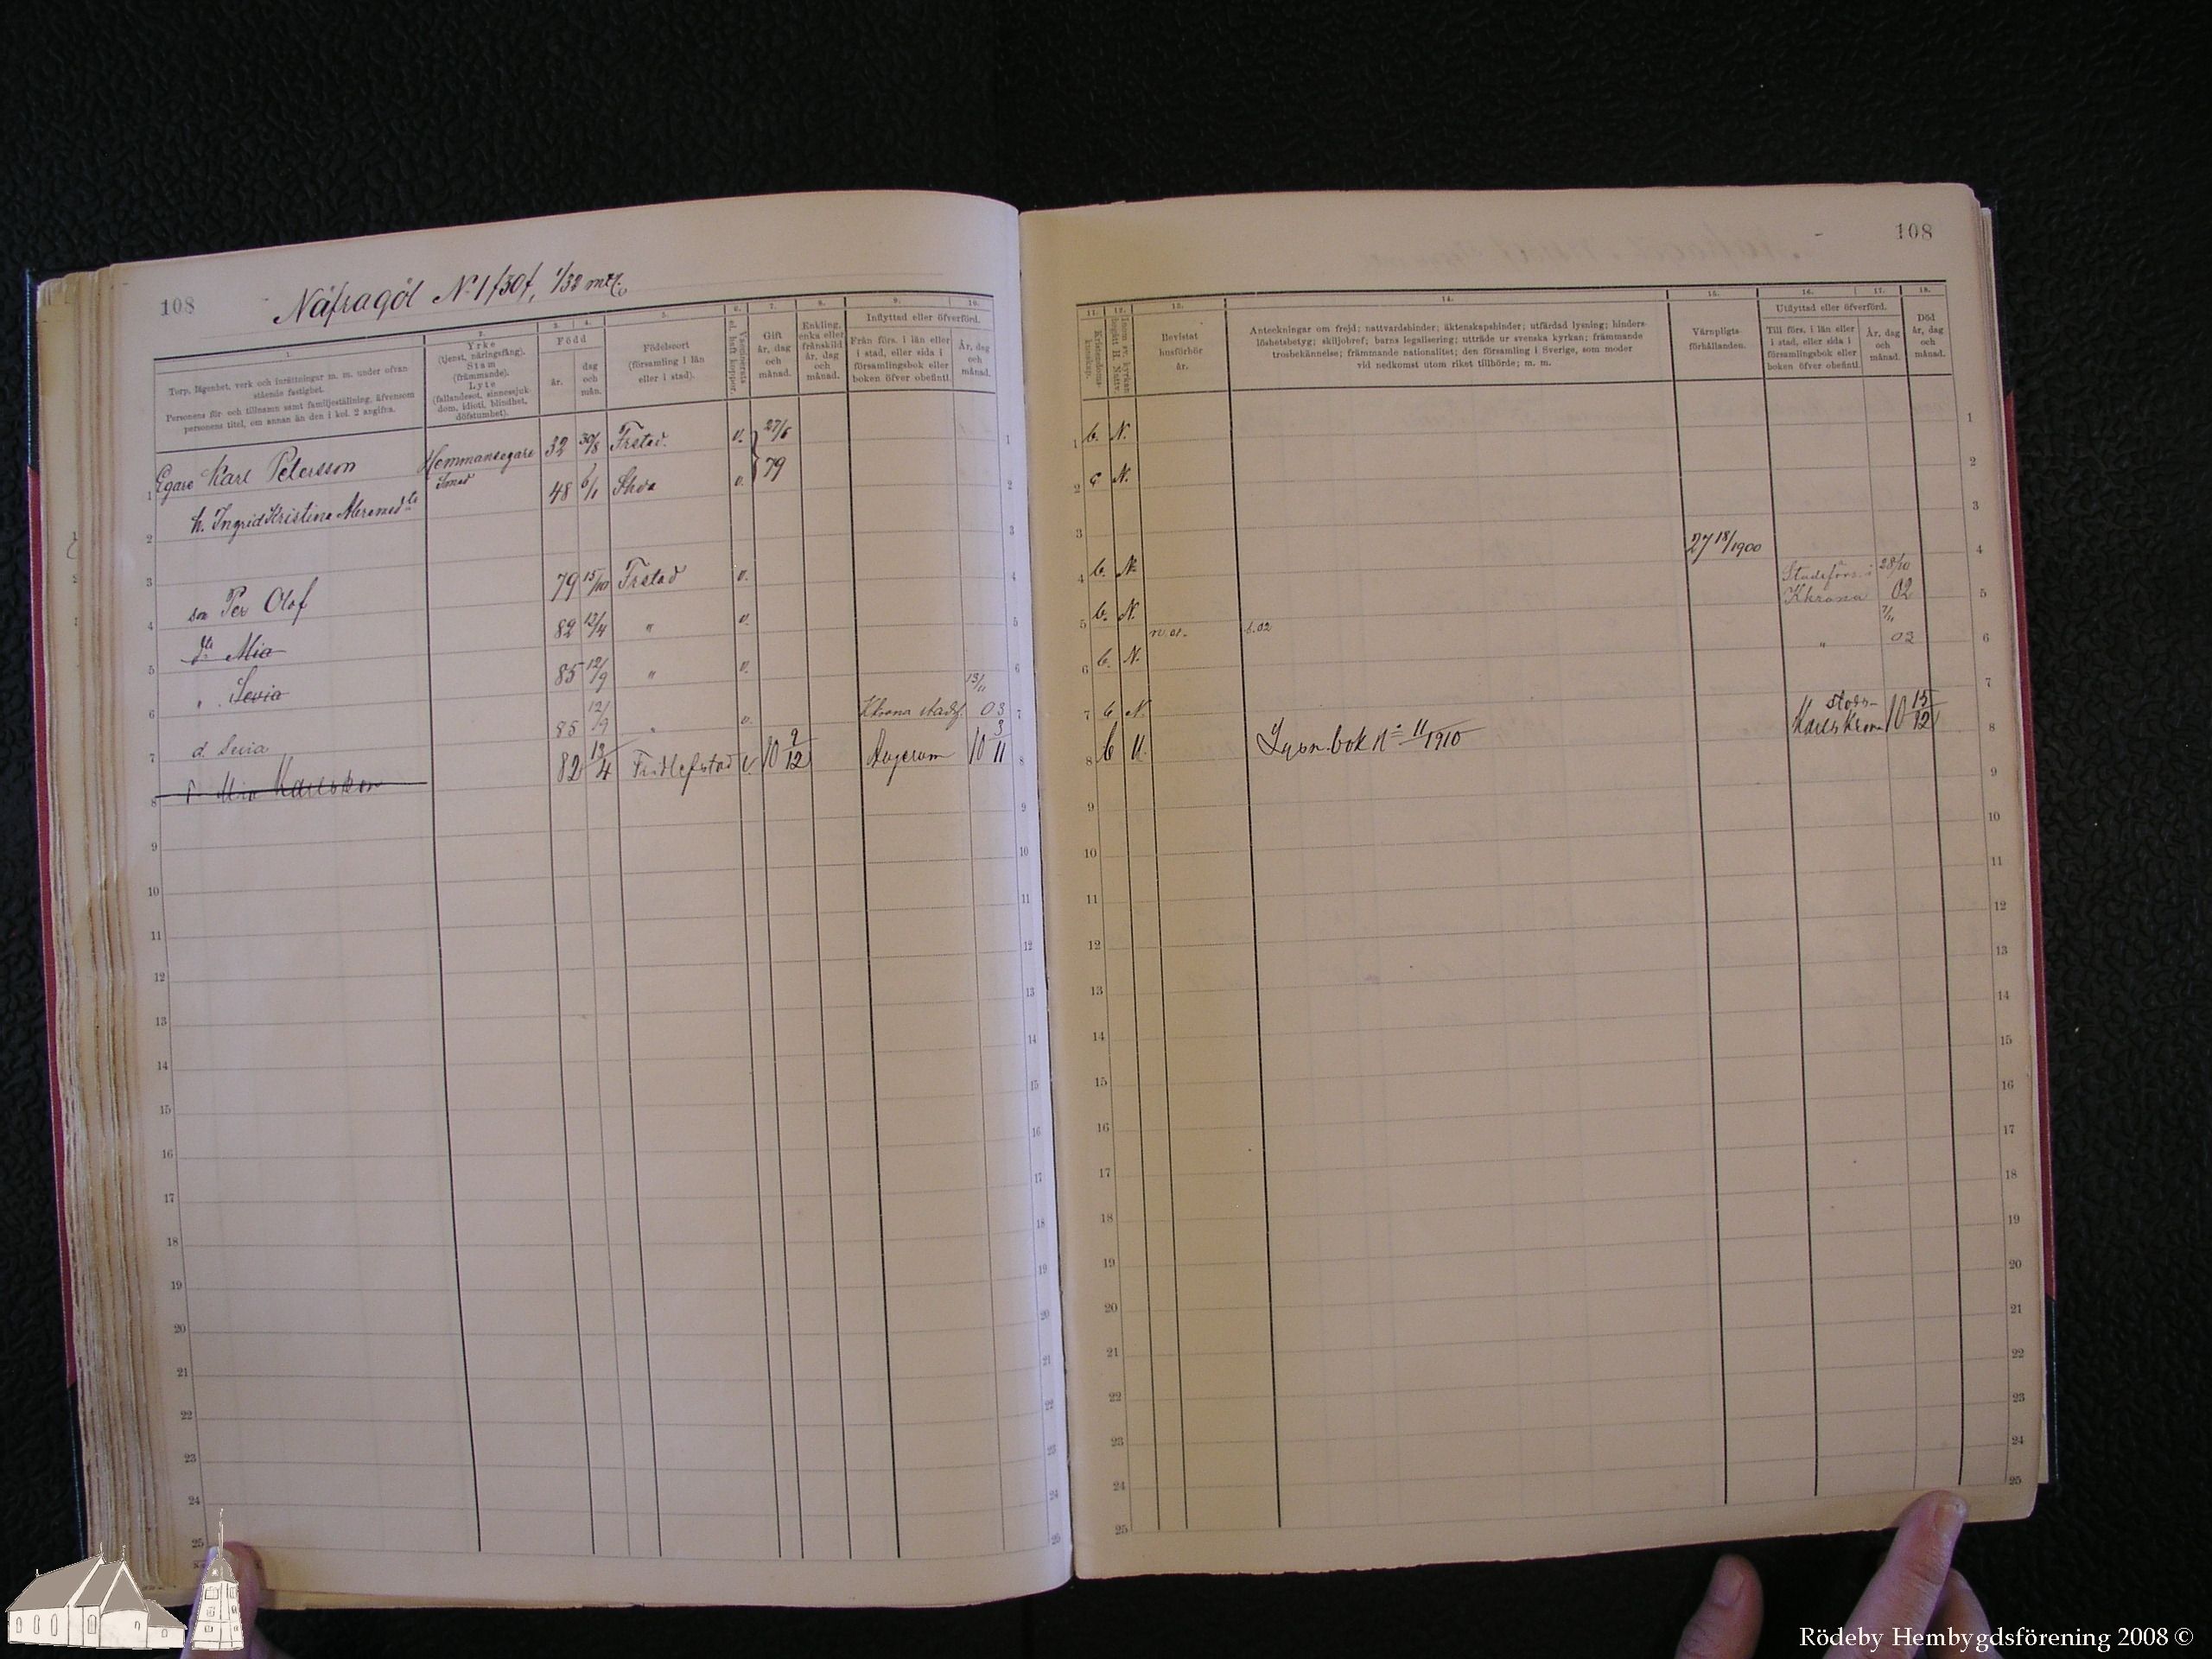 108
Näfragöl N:1 f30f, 1/32 mtl.
1. 2. 3. 4. 5. 6. 7. 8. 9. 10.
Torp, lägenhet, verk och inrättningar m. m. under ofvan
stående fastighet.
Personens för- och tillnamn samt familjeställning, äfvensom
personens titel, om annan än den i kol. 2 angifva.
Yrke
(tjenst, näringsfång).
Stam
(främmande).
Lyte
(fallandesot, sinnessjuk-
dom, idioti, blindhet,
döfstumhet).
Född
år.
dag
och
mån.
Födelseort
(församling i län
eller i stad).
Vaccinerats
el. haft koppor.
Gift
år, dag
och
månad.
Enkling,
enka eller
frånskild
år, dag
och
månad.
Inflyttad eller öfverförd.
Från förs. i län eller
i stad, eller sida i
församlingsbok eller
boken öfver obefintl.
År, dag
och
månad.
1 Egare Karl Petersson Hemmansegare 32 30/8 Frstad. v. 27/6 1
Smed
2 h. Ingrid Kristina Abramsdtr 48 6/1 Shda v. 79 2
3 3
4 son Per Olof 79 15/10 Frstad v. 4
5 dtr Mia 82 13/4 " v. 5
6 " Sevia 85 12/9 " v. 6
7 d. Sevia 85 12/9 " v. Khrona stadsf. 13/11 03 7
8 P. Mia Karlsson 82 13/4 Fridlefstad v. 10 2/12 Augerum 10 3/11 8
9 9
10 10
11 11
12 12
13 13
14 14
15 15
16 16
17 17
18 18
19 19
20 20
21 21
22 22
23 23
24 24
25 25
108
11. 12. 13. 14. 15. 16. 17. 18.
Kristendoms-
kunskap.
Inom sv. kyrkan
begått H. Nattv.
Bevistat
husförhör
år.
Anteckningar om frejd; nattvardshinder; äktenskapshinder; utfärdad lysning; hinders-
löshetsbetyg; skiljobref; barns legalisering; utträde ur svenska kyrkan; främmande
trosbekännelse; främmande nationalitet; den församling i Sverige, som moder
vid nedkomst utom riket tillhörde; m. m.
Värnpligts-
förhållanden.
Utflyttad eller öfverförd.
Till förs. i län eller
i stad, eller sida i
församlingsbok eller
boken öfver obefintl.
År, dag
och
månad.
Död
år, dag
och
månad.
1 b. N. 1
2 c N. 2
3 3
4 b. N. 27 18/1900 4
5 b. N. n. 01. b. 02 Stadsförs. i Khrona 28/10 02 5
6 b. N. " 7/11 03 6
7 b N. 7
8 b N. Lysn.bok No 11/1910 stads- Karlskrona 10 15/12 8
9 9
10 10
11 11
12 12
13 13
14 14
15 15
16 16
17 17
18 18
19 19
20 20
21 21
22 22
23 23
24 24
25 25
Rödeby Hembygdsförening 2008 ©